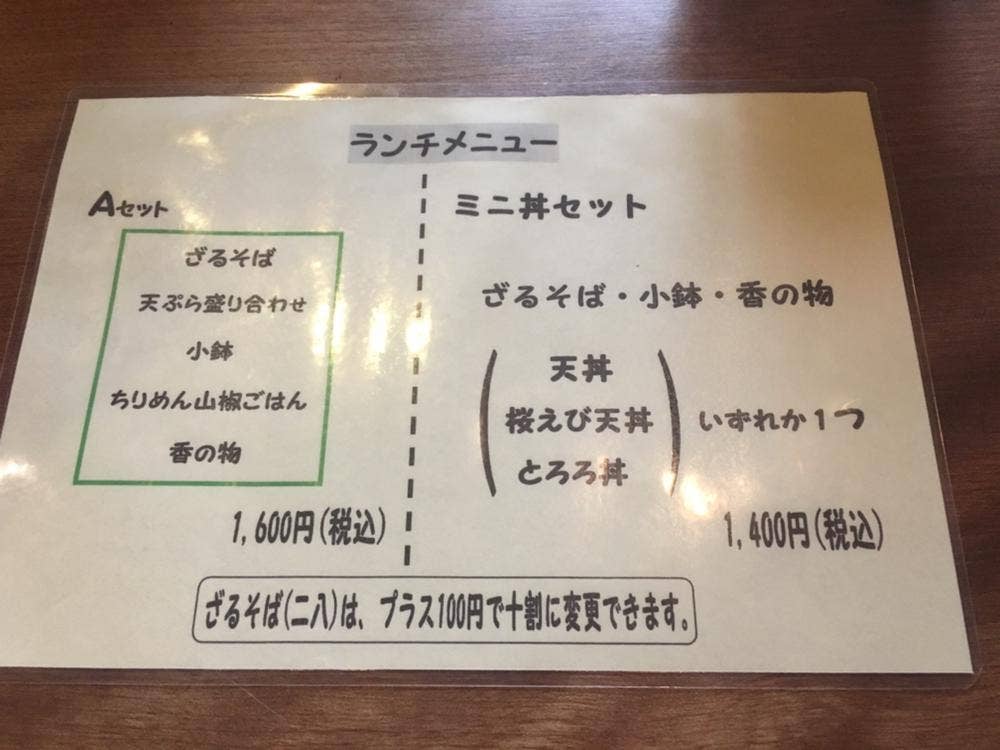 ランチメニュー
Aセット
ざるそば
天ぷら盛り合わせ
小鉢
ちりめん山椒ごはん
香の物
1,600円(税込)
ミニ丼セット
ざるそば・小鉢・香の物
天丼
桜えび天丼
とろろ丼
いずれか1つ
1,400円(税込)
ざるそば(二八)は、プラス100円で十割に変更できます。